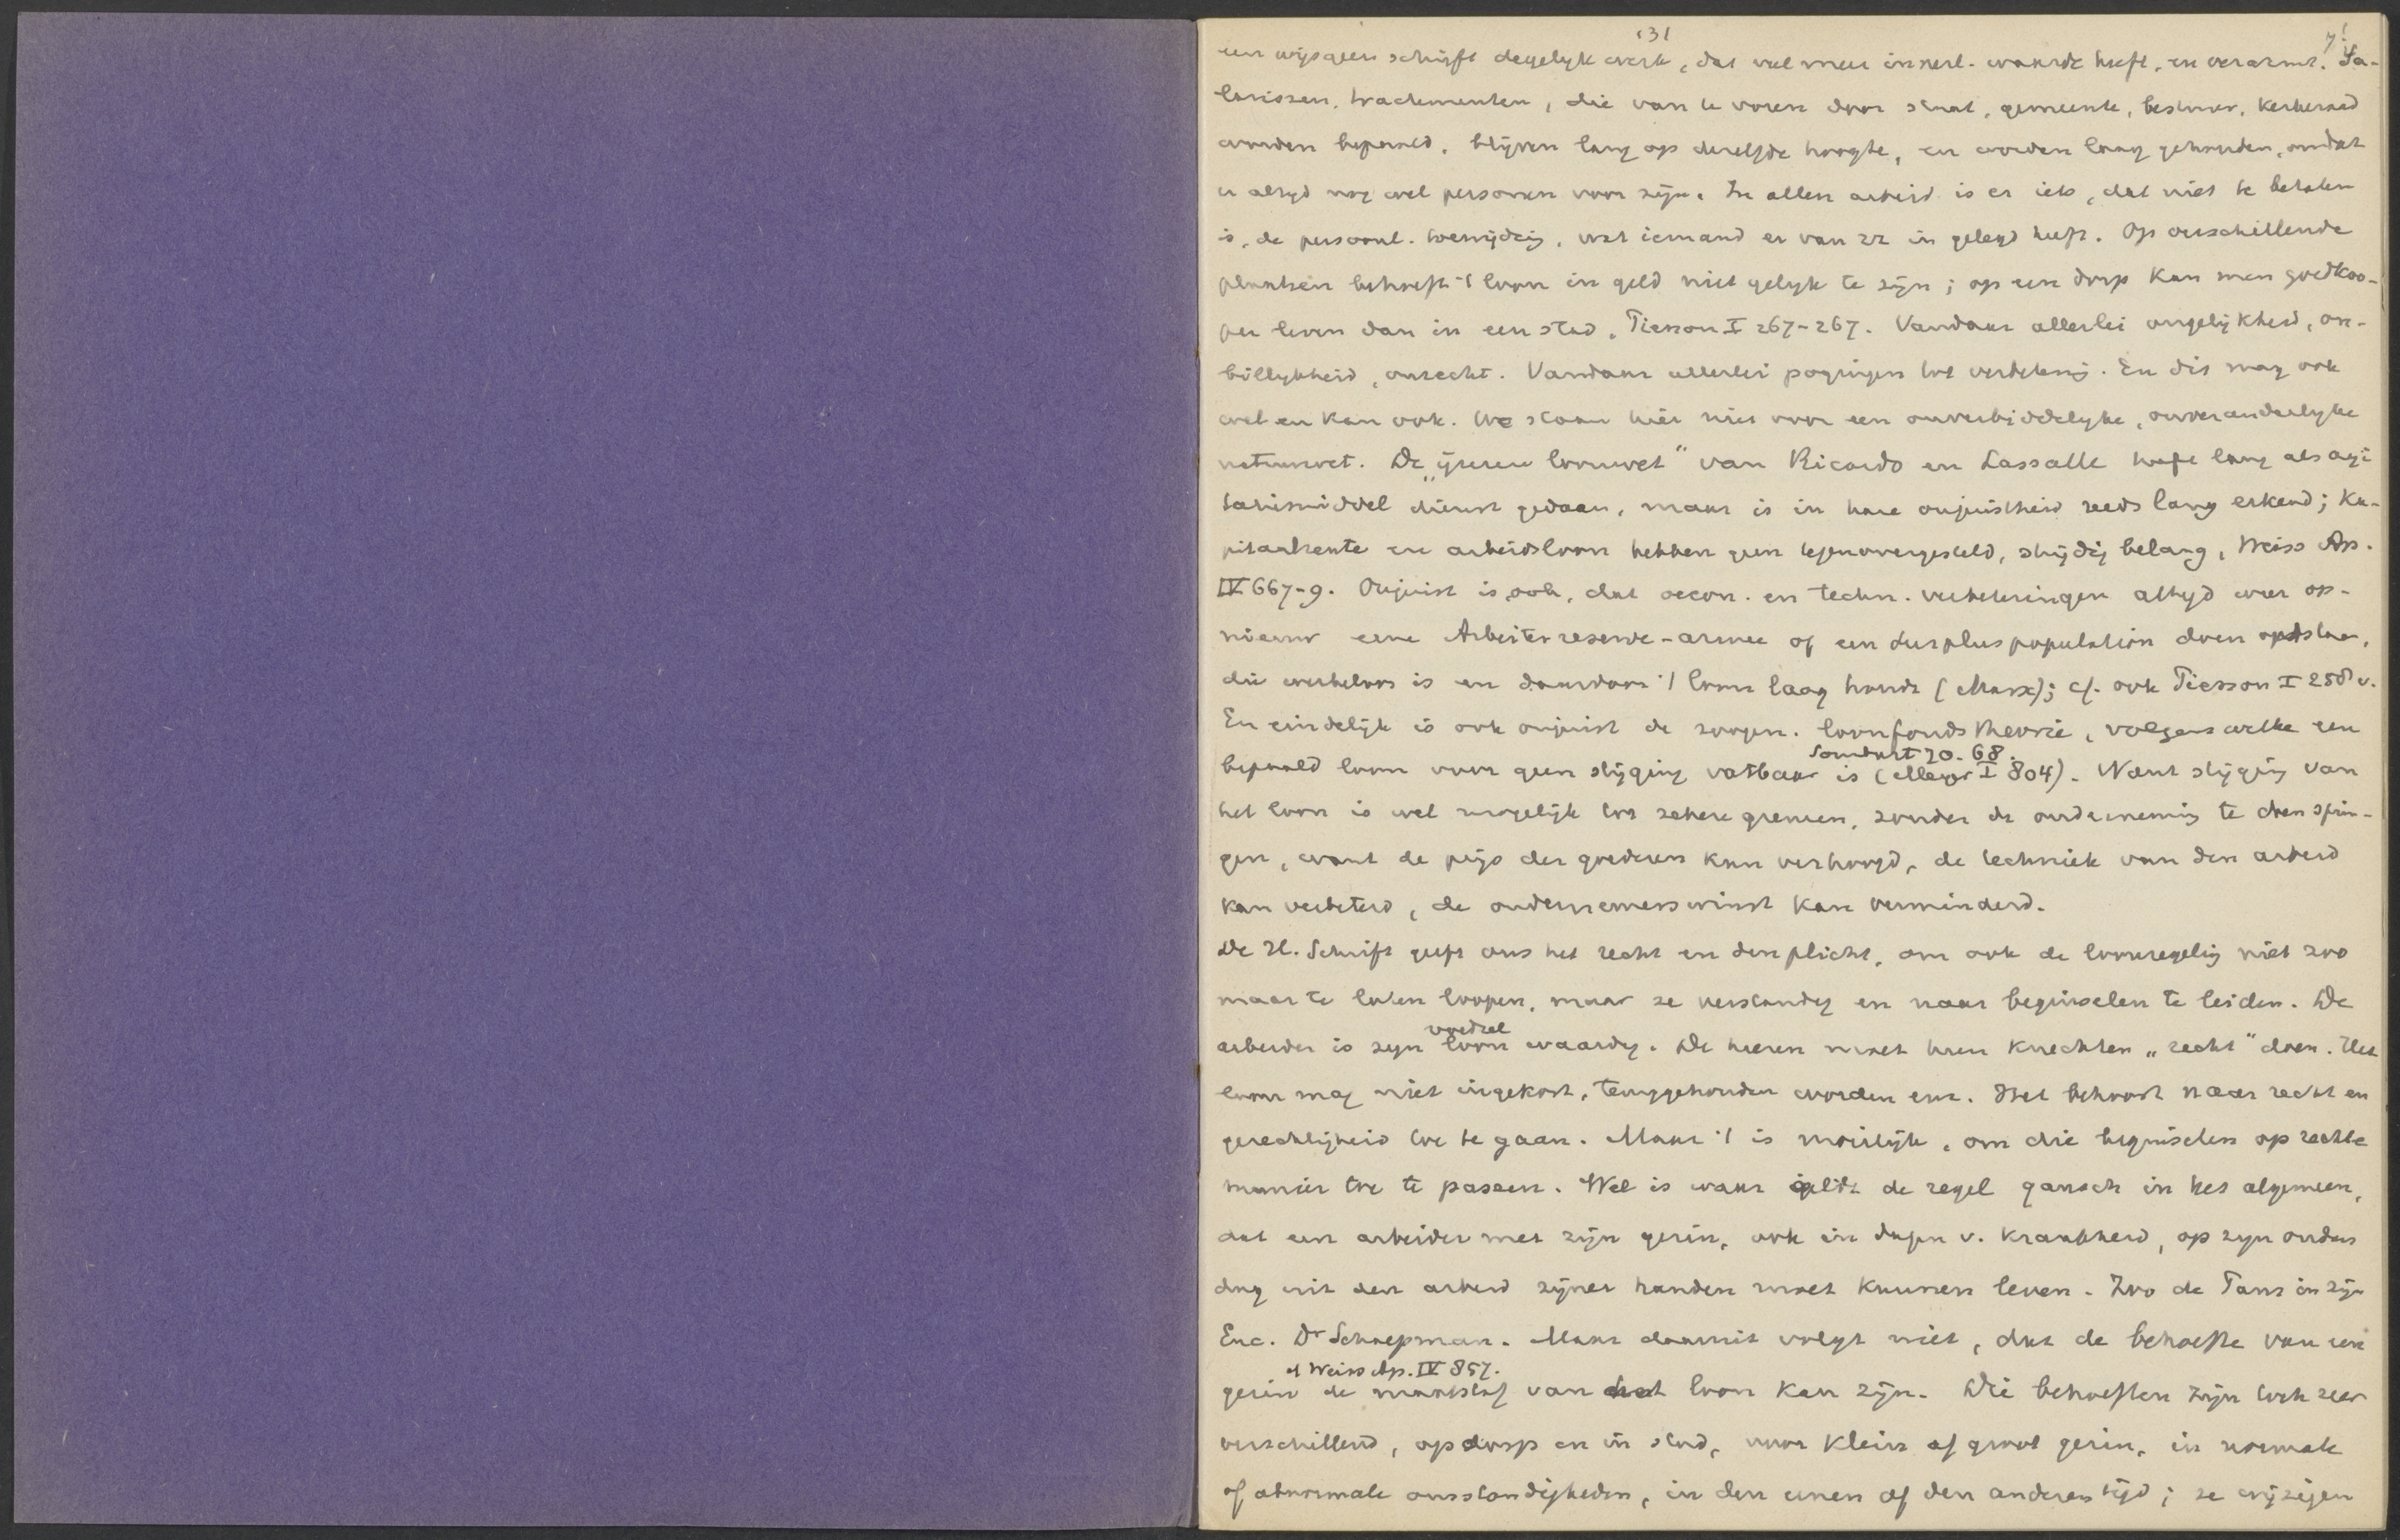 131
7!
een wijsgeer schrijft degelijk werk, dat veel meer innerl. waarde heeft, en verarmt. Sa-
larissen, tractementen, die van te voren door staat, gemeente, bestuur, kerkeraad
worden bepaald, blijven lang op dezelfde hoogte, en worden laag gehouden, omdat
er altijd nog wel personen voor zijn. In allen arbeid is er iets, dat niet te betalen
is, de persoonl. toewijding, wat iemand er van zz in gelegd heeft. Op verschillende
plaatsen behoeft 't loon in geld niet gelijk te zijn; op een dorp kan men goedkoo-
per leven dan in een stad, Pierson I 267-267. Vandaar allerlei ongelijkheid, on-
billijkheid, onrecht. Vandaar allerlei pogingen tot verbetering. En dit mag ook
wel en kan ook. We staan hier niet voor een onverbiddelijke, onveranderlijke
natuurwet. De „ijzeren loonwet" van Ricardo en Lassalle heeft lang als agi
tatiemiddel dienst gedaan, maar is in hare onjuistheid reeds lang erkend; Ka-
pitaalrente en arbeidsloon hebben geen tegenovergesteld, strijdig belang, Weiss Ap.
IV 667-9. Onjuist is ook, dat oecon. en techn. verbeteringen altijd weer op-
nieuw eene Arbeiterreserve-armee of een surpluspopulation doen ontstaan,
die werkeloos is en daardoor 't loon laag houdt (Marx); cf. ook Pierson I 258 v.
En eindelijk is ook onjuist de zoogen. loonfondstheorie, volgens welke een
Sombart 70. 68.
bepaald loon voor geen stijging vatbaar is (Meyer I 804). Want stijging van
het loon is wel mogelijk tot zekere grenzen, zonder de onderneming te doen sprin-
gen, want de prijs der goederen kan verhoogd, de techniek van den arbeid
kan verbeterd, de ondernemerswinst kan verminderd.
De H. Schrift geeft ons het recht en den plicht, om ook de loonregeling niet zoo
maar te laten loopen, maar ze verstandig en naar beginselen te leiden. De
voedsel
arbeider is zijn loon waardig. De heeren moet hun knechten „recht" doen. Het
loon mag niet ingekort, teruggehouden worden enz. Het behoort naar recht en
gerechtigheid toe te gaan. Maar 't is moeilijk, om die beginselen op rechte
manier toe te passen. Wel is waar geldt de regel gansch in het algemeen,
dat een arbeider met zijn gezin, ook in dagen v. krankheid, op zijn ouden
dag uit den arbeid zijner handen moet kunnen leven. Zoo de Paus in zijn
Enc. Dr Schaepman. Maar daaruit volgt niet, dat de behoefte van een
cf Weiss Ap. IV 857.
gezin de maatstaf van het loon kan zijn. Die behoeften zijn toch zeer
verschillend, op dorp en in stad, voor klein of groot gezin, in normale
of abnormale omstandigheden, in den eenen of den anderen tijd; ze wijzigen